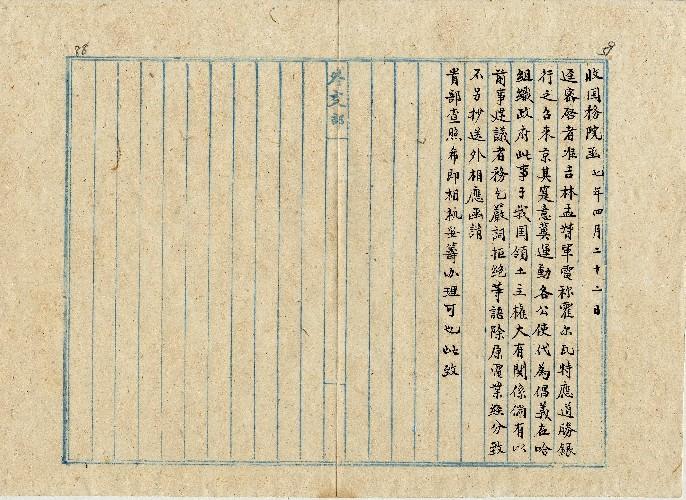 收国務院函 七年四月二十二日
逕密啓者准吉林孟督軍電称霍尔瓦特應道勝銀
行之召来京其寔意冀運動各公使代為倡義在哈
組織政府此事于我国領土主權大有関係倘有以
前事提議者務乞嚴詞拒絶等語除原電業経分致
不另抄送外相應函請
貴部查照希即相机妥籌办理可也此致
外交部